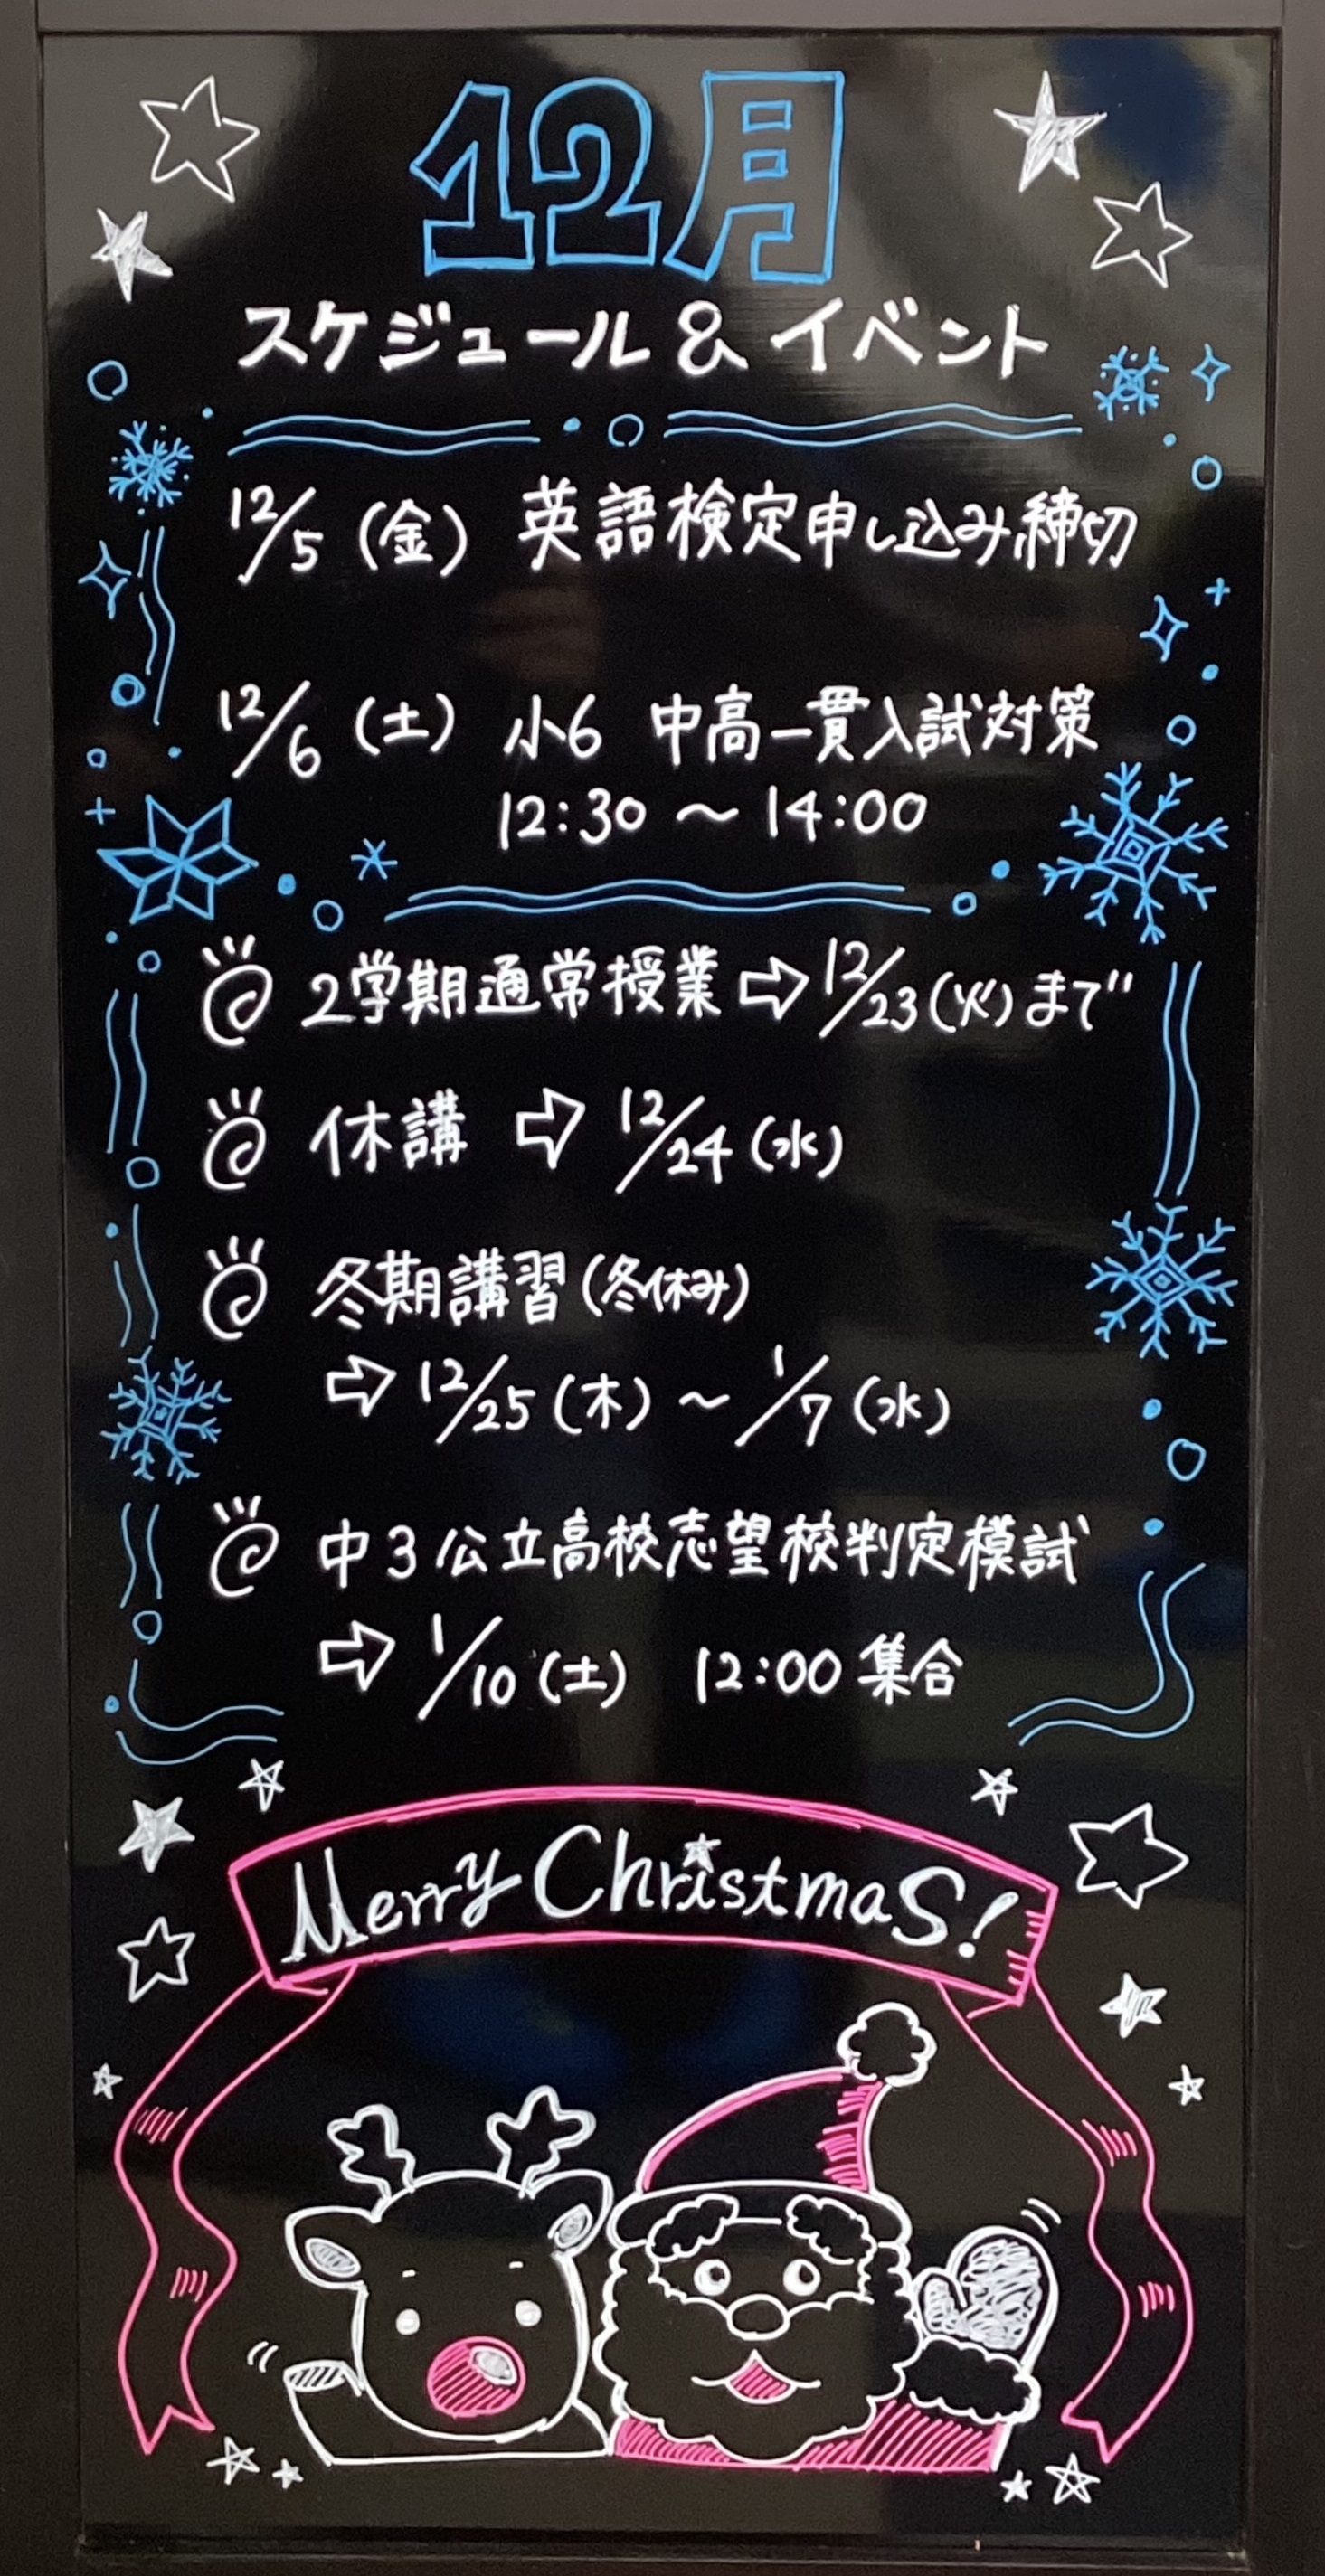 12月
スケジュール & イベント
12/5 (金) 英語検定申し込み締切
12/6 (土) 小6 中高一貫入試対策
12:30 〜 14:00
2学期通常授業 ⇨ 12/23(火)まで
休講 ⇨ 12/24 (水)
冬期講習 (冬休み)
⇨ 12/25 (木) 〜 1/7 (水)
中3公立高校志望校判定模試
⇨ 1/10 (土) 12:00 集合
Merry Christmas!